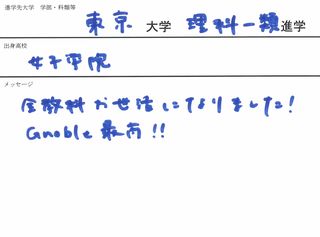 進学先大学 学部・科類等
東京 大学 理科一類 進学
出身高校
女子学院
メッセージ
全教科お世話になりました!
Gnoble最高!!